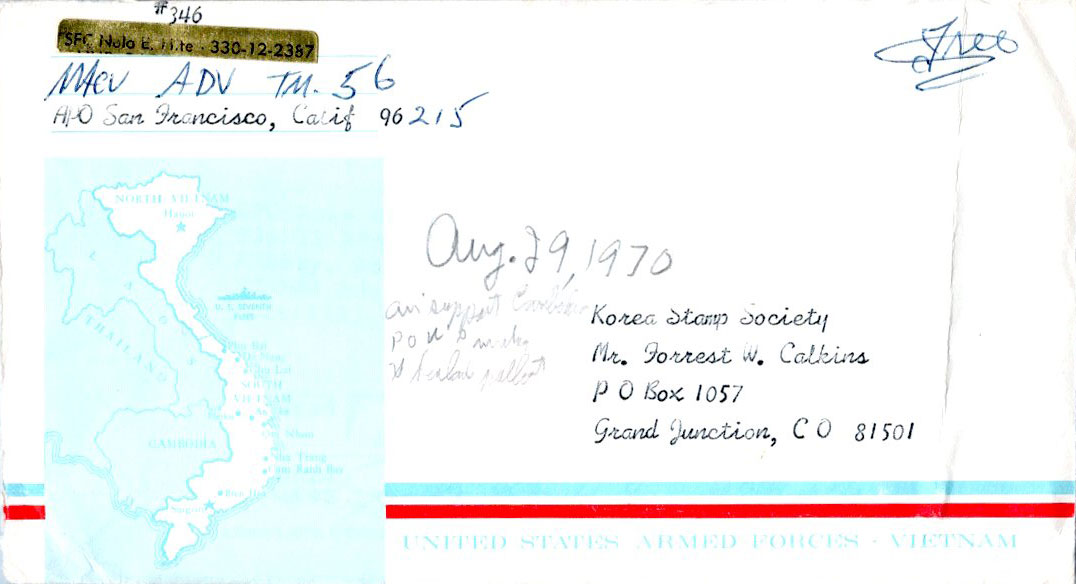 #346
SFC Nolo E. Hite - 330-12-2387
MACV ADV TM. 56
APO San Francisco, Calif 96215
Free
NORTH VIETNAM
Hanoi
U. S. SEVENTH
FLEET
THAILAND
Aug. 29, 1970
air support
Korea Stamp Society
Mr. Forrest W. Calkins
P O Box 1057
Grand Junction, CO 81501
Phu Bai
Da Nang
Chu Lai
SOUTH
VIETNAM
Qui Nhon
CAMBODIA
Nha Trang
Cam Ranh Bay
Bien Hoa
Saigon
UNITED STATES ARMED FORCES - VIETNAM